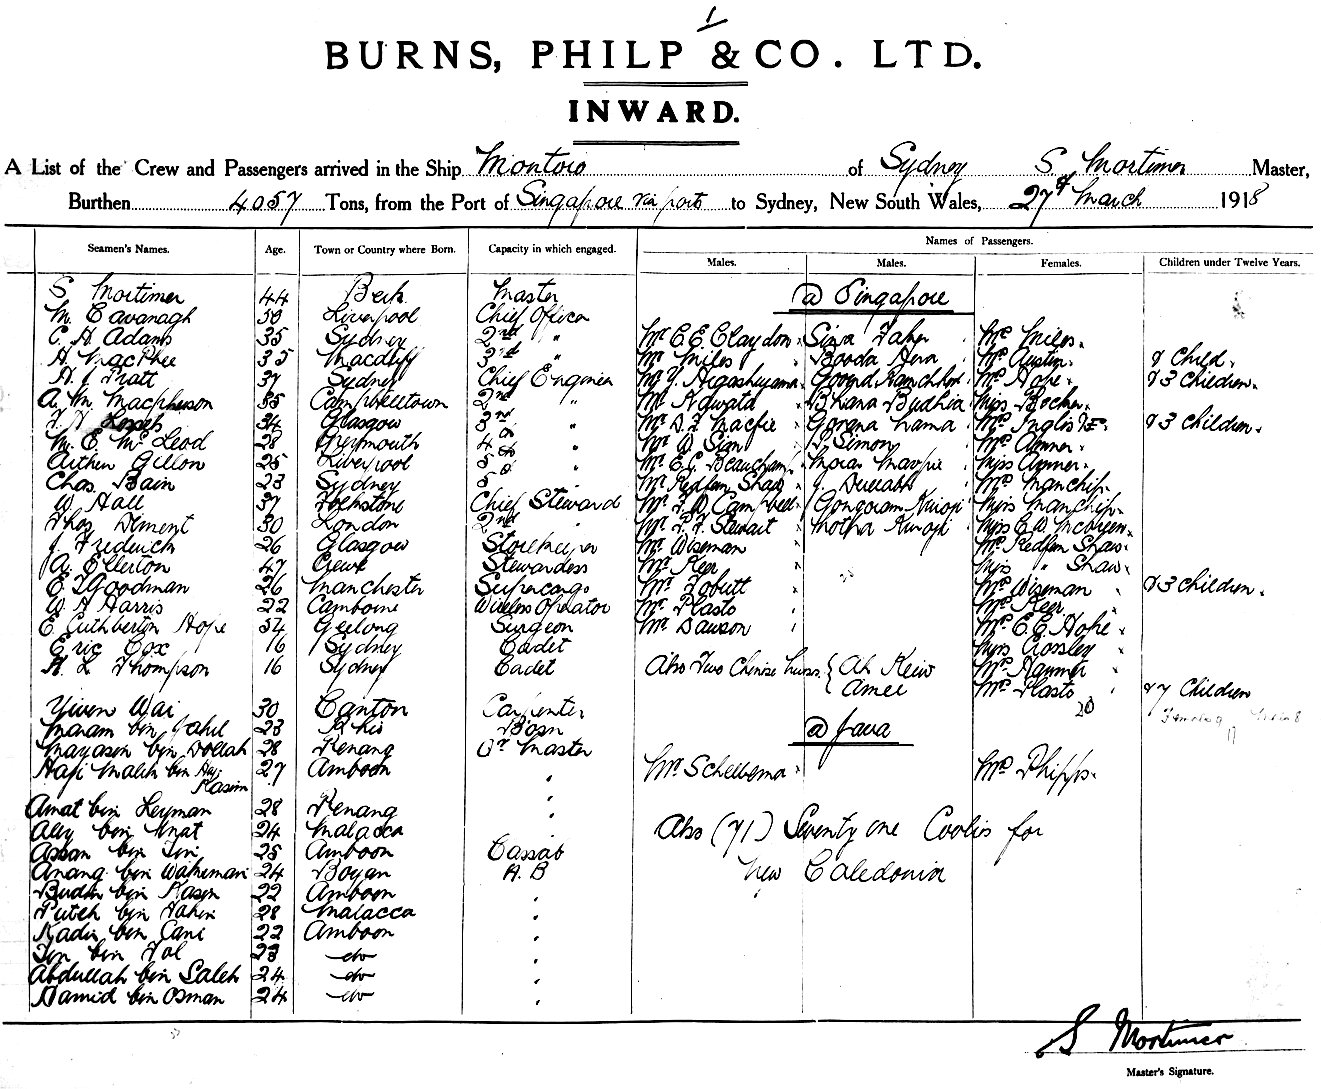 BURNS, PHILP & CO. LTD.
INWARD.
A List of the Crew and Passengers arrived in the Ship Montoro of Sydney S. Mortimer Master,
Burthen 4057 Tons, from the Port of Singapore via ports to Sydney, New South Wales, 27th March 1918
Seamen's Names. Age. Town or Country where Born. Capacity in which engaged. Names of Passengers.
Males. Males. Females. Children under Twelve Years.
S. Mortimer 44 Master @ Singapore
M. Cavanagh 50 Liverpool Chief Officer
C. H Adams 35 Sydney 2nd " Mr C. E. Claydon Mrs Miles
H. MacPhee 35 Macduff 3rd " Mr Miles Mrs Austin & Child
H. J. Pratt 37 Sydney Chief Engineer Mr Y. Higashiyama Mrs Hope & 3 Children
A. M. Macpherson 35 Campbelltown 2nd " Mr Kawata Bhana Budhia Miss
34 Glasgow 3rd " Mr D. J. Macfie Govana Lama Mrs Inglis & 3 Children
M. E. McLeod 28 Greymouth 4th " Mr W Sign Simon Mrs Aumer
Aitken Gillon 25 Liverpool 5th Mr E. G. Beauchamp Miss Aumer
Chas. Bain 23 Sydney 5 Mr Redfern Shaw Mrs Manchip
W. Hall 37 Folkstone Chief Steward Mr Campbell Miss Manchip
Thos. Dement 30 London 2nd Mr Stewart Motha Miss
J. Frederick 26 Glasgow Storekeeper Mr Wiseman Mrs Redfern Shaw
A. Ellerton 47 Crewe Stewardess Mr Keer Miss " Shaw
E J Goodman 26 Manchester Supercargo Mr Mrs Wiseman & 3 Children
W. H Harris 22 Camborne Wireless Operator Mr Plasto Mrs Keer
E. Cuthberton Hope 54 Geelong Surgeon Mr Dawson Mrs E. C. Hope
Eric Cox 16 Sydney Cadet Miss Crossley
H. L. Thompson 16 Sydney Cadet Also Two Chinese { Ah Keiw Mrs Hammer
Amee Mrs Plasto & 7 Children
Yiven Wai 30 Canton Carpenter 20
Maram bin Jahil 23 Rhio Bosn @ Java
Mayasin bin Dollah 28 Penang Qr Master
Haji Malik bin Haji 27 Amboon " Mr Schelbema Mrs Phipps
Kasim
Amat bin Leyman 28 Penang "
Aley bin Amat 24 Malacca " Also (71) Seventy one Coolis for
Assan bin 25 Amboon Cassab
Anang bin 24 Boyan A. B New Caledonia
Budin bin Kasim 22 Amboon "
Puteh bin 28 Malacca "
Kadir bin Cani 22 Amboon "
bin 23 do "
Abdullah bin Saleh 24 do "
Hamid bin Osman 24 do "
S Mortimer
Master's Signature.